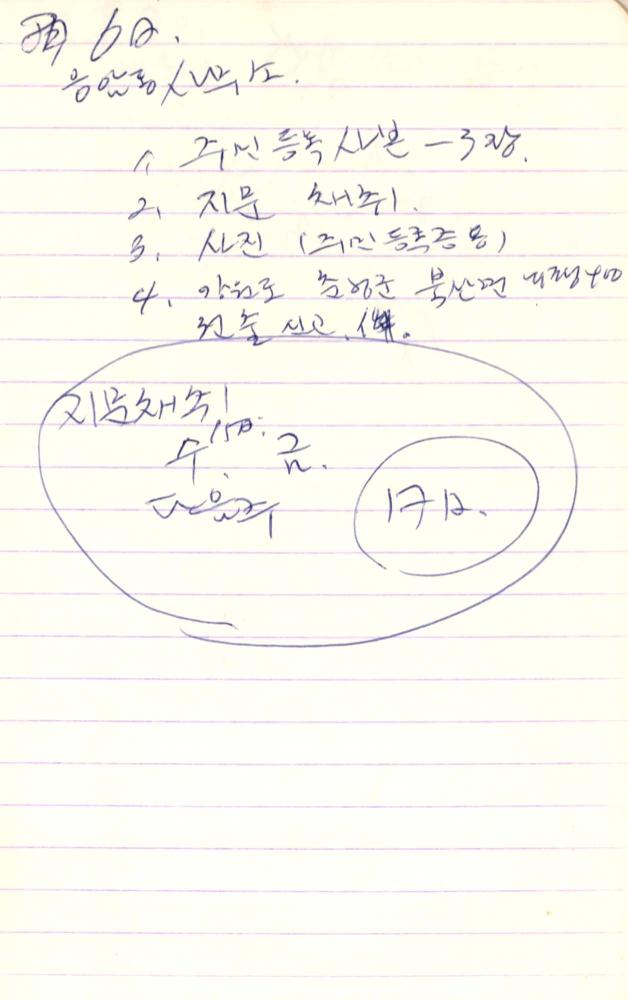 6日.
응암동사무소.
1. 주민등록사본 - 3장.
2. 지문 채취.
3. 사진 (주민등록증용)
4. 강원도 춘성군 북산면
전출 신고. 件.
지문채취
15日.
수. 금.
다음주
17日.